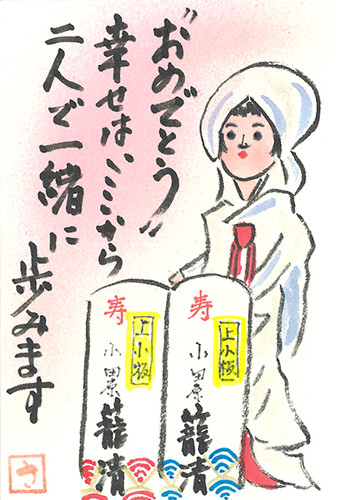 "おめでとう"
幸せはここから
二人で一緒に
歩みます
寿
上小板
小田原
籠清
寿
上小板
小田原
籠清
さ